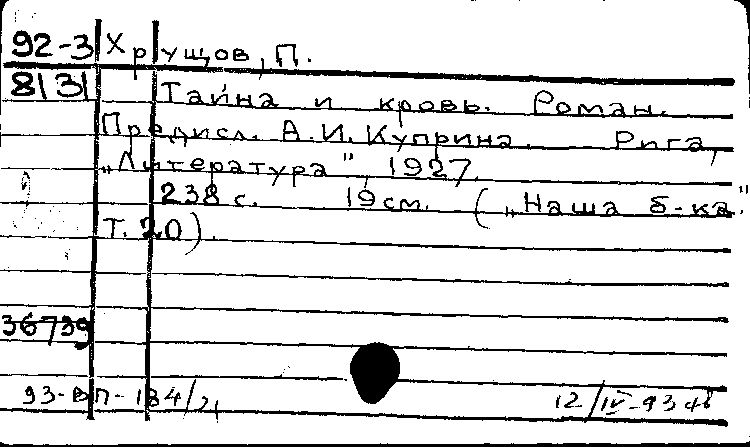 92-3 Хрущов, П.
8131 Тайна и кровь. Роман.
Предисл. А.И. Куприна. Рига,
„Литература", 1927.
238 с. 19 см. („Наша б-ка"
Т. 20).
36739
93-ВП-184/21
12/IV-93